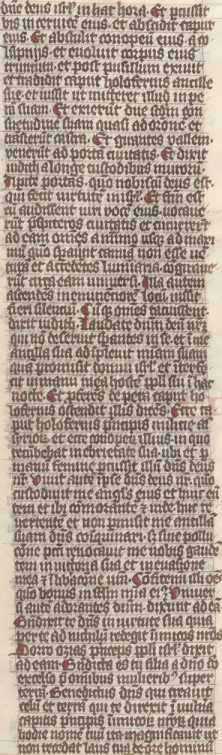 dñe deus isrł in hac hora. Et percussit
bis in cervice eius. et abscidit caput
eius. Et abstulit conopeu eius a co
lupnis. et evoluit corpus eius
truncum. et post pusillum exivit
et tradidit caput holofernis ancille
sue. et iussit ut mitteret illud in pe
ra suam. Et exierut due scdm con
suetudine suam quasi ad orone. et
transierut castra. Et girantes vallem
venerut ad porta civitatis. Et dixit
iudith a longe custodibus muroru.
Aperite portas. quo nobiscu deus est.
qui fecit virtute in isrł. Et fcm est
cu audissent viri voce eius. vocave
rut presbiteros civitatis. et concurrerut
ad eam omnes a minimo usq3 ad maxi
mu. quo speraret eam iam non esse ve
tura. et accedetes luminaria. congirave
rut circa eam universi. Illa autem
ascendes in eminentiore locu. iussit
fieri silentiu. Cuq3 omes tacuissent
dixit iudith. Laudate dnm deu nrm
qui no deseruit sperantes in se. et in me
ancilla sua adimplevit miam suam
qua promisit domui isrł. et interfe
cit in manu mea hoste ppli sui i hac
nocte. Et proferes de pera caput ho
lofernis ostendit illud dices. Ecce ca
put holofernis principis militie as
sirioru. et ecce conopeu illius. in quo
recumbebat in ebrietate sua. ubi et p
manu femine percussit illu dns deus
nr. Vivit aute ipse dns deus. qm
custodivit me angls eius et hinc eu
tem et ibi comorante. et inde huc re
vertente. et non permisit me ancilla
suam dns coinquinari. sed sine pollu
cone peccati revocavit me vobis gauden
tem in victoria sua et in evasione
mea et liberacone vra. Confitemini illi oes
quo bonus. in sclm mia ei9. Univer
si aute adorantes dnm. dixerut ad ea.
Benedixit te dns in virtute sua. quia
per te ad nichilu redegit inimicos nros
Porro ozias princeps ppli isrł. dixit
ad eam. Benedicta es tu filia a dno deo
excelso. pre omnibus mulierib9 super
terra. Benedictus dns qui creavit
celu et terra. qui te direxit i vulnera
capitis principis inimicor nror. quia
hodie nome tuu ita magnificavit ut
non recedat laus tua de ore hominu